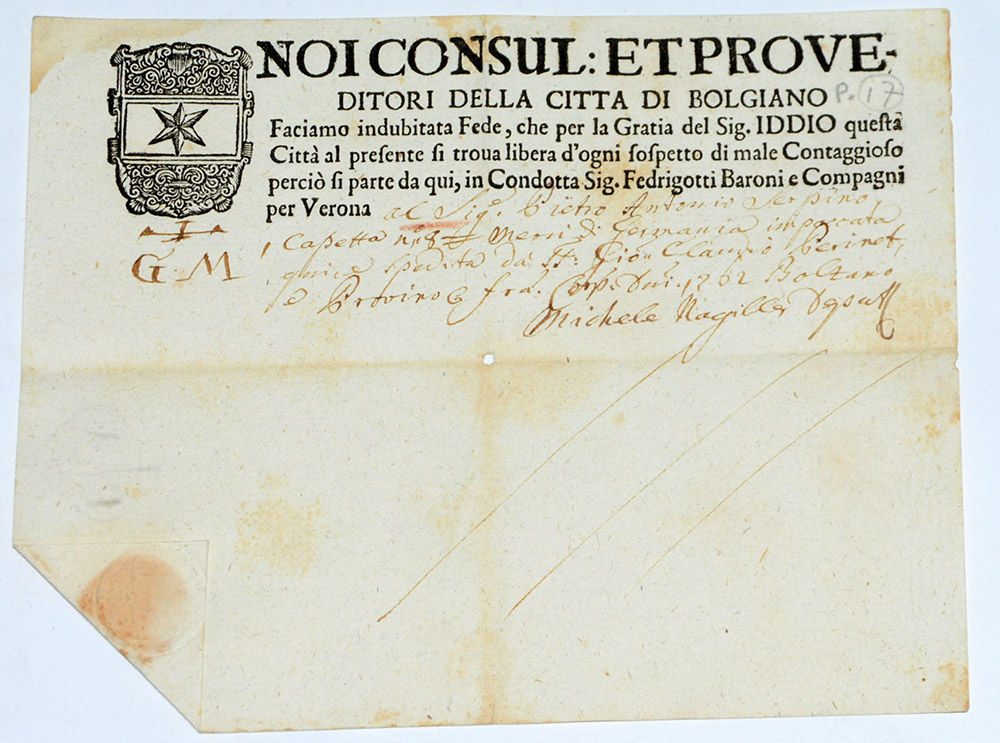 NOI CONSUL: ET PROVE-
DITORI DELLA CITTA DI BOLGIANO
P. 17
Faciamo indubitata Fede, che per la Gratia del Sig. IDDIO questa
Città al presente si troua libera d'ogni sospetto di male Contaggioso
perciò si parte da qui, in Condotta Sig. Fedrigotti Baroni e Compagni
per Verona al Sig.r Pietro Antonio Serpino
Casetta Merci di Germania
G M
quivi spedita da Gio Claudio Perinet
e Bolzano
Michele Nagiller